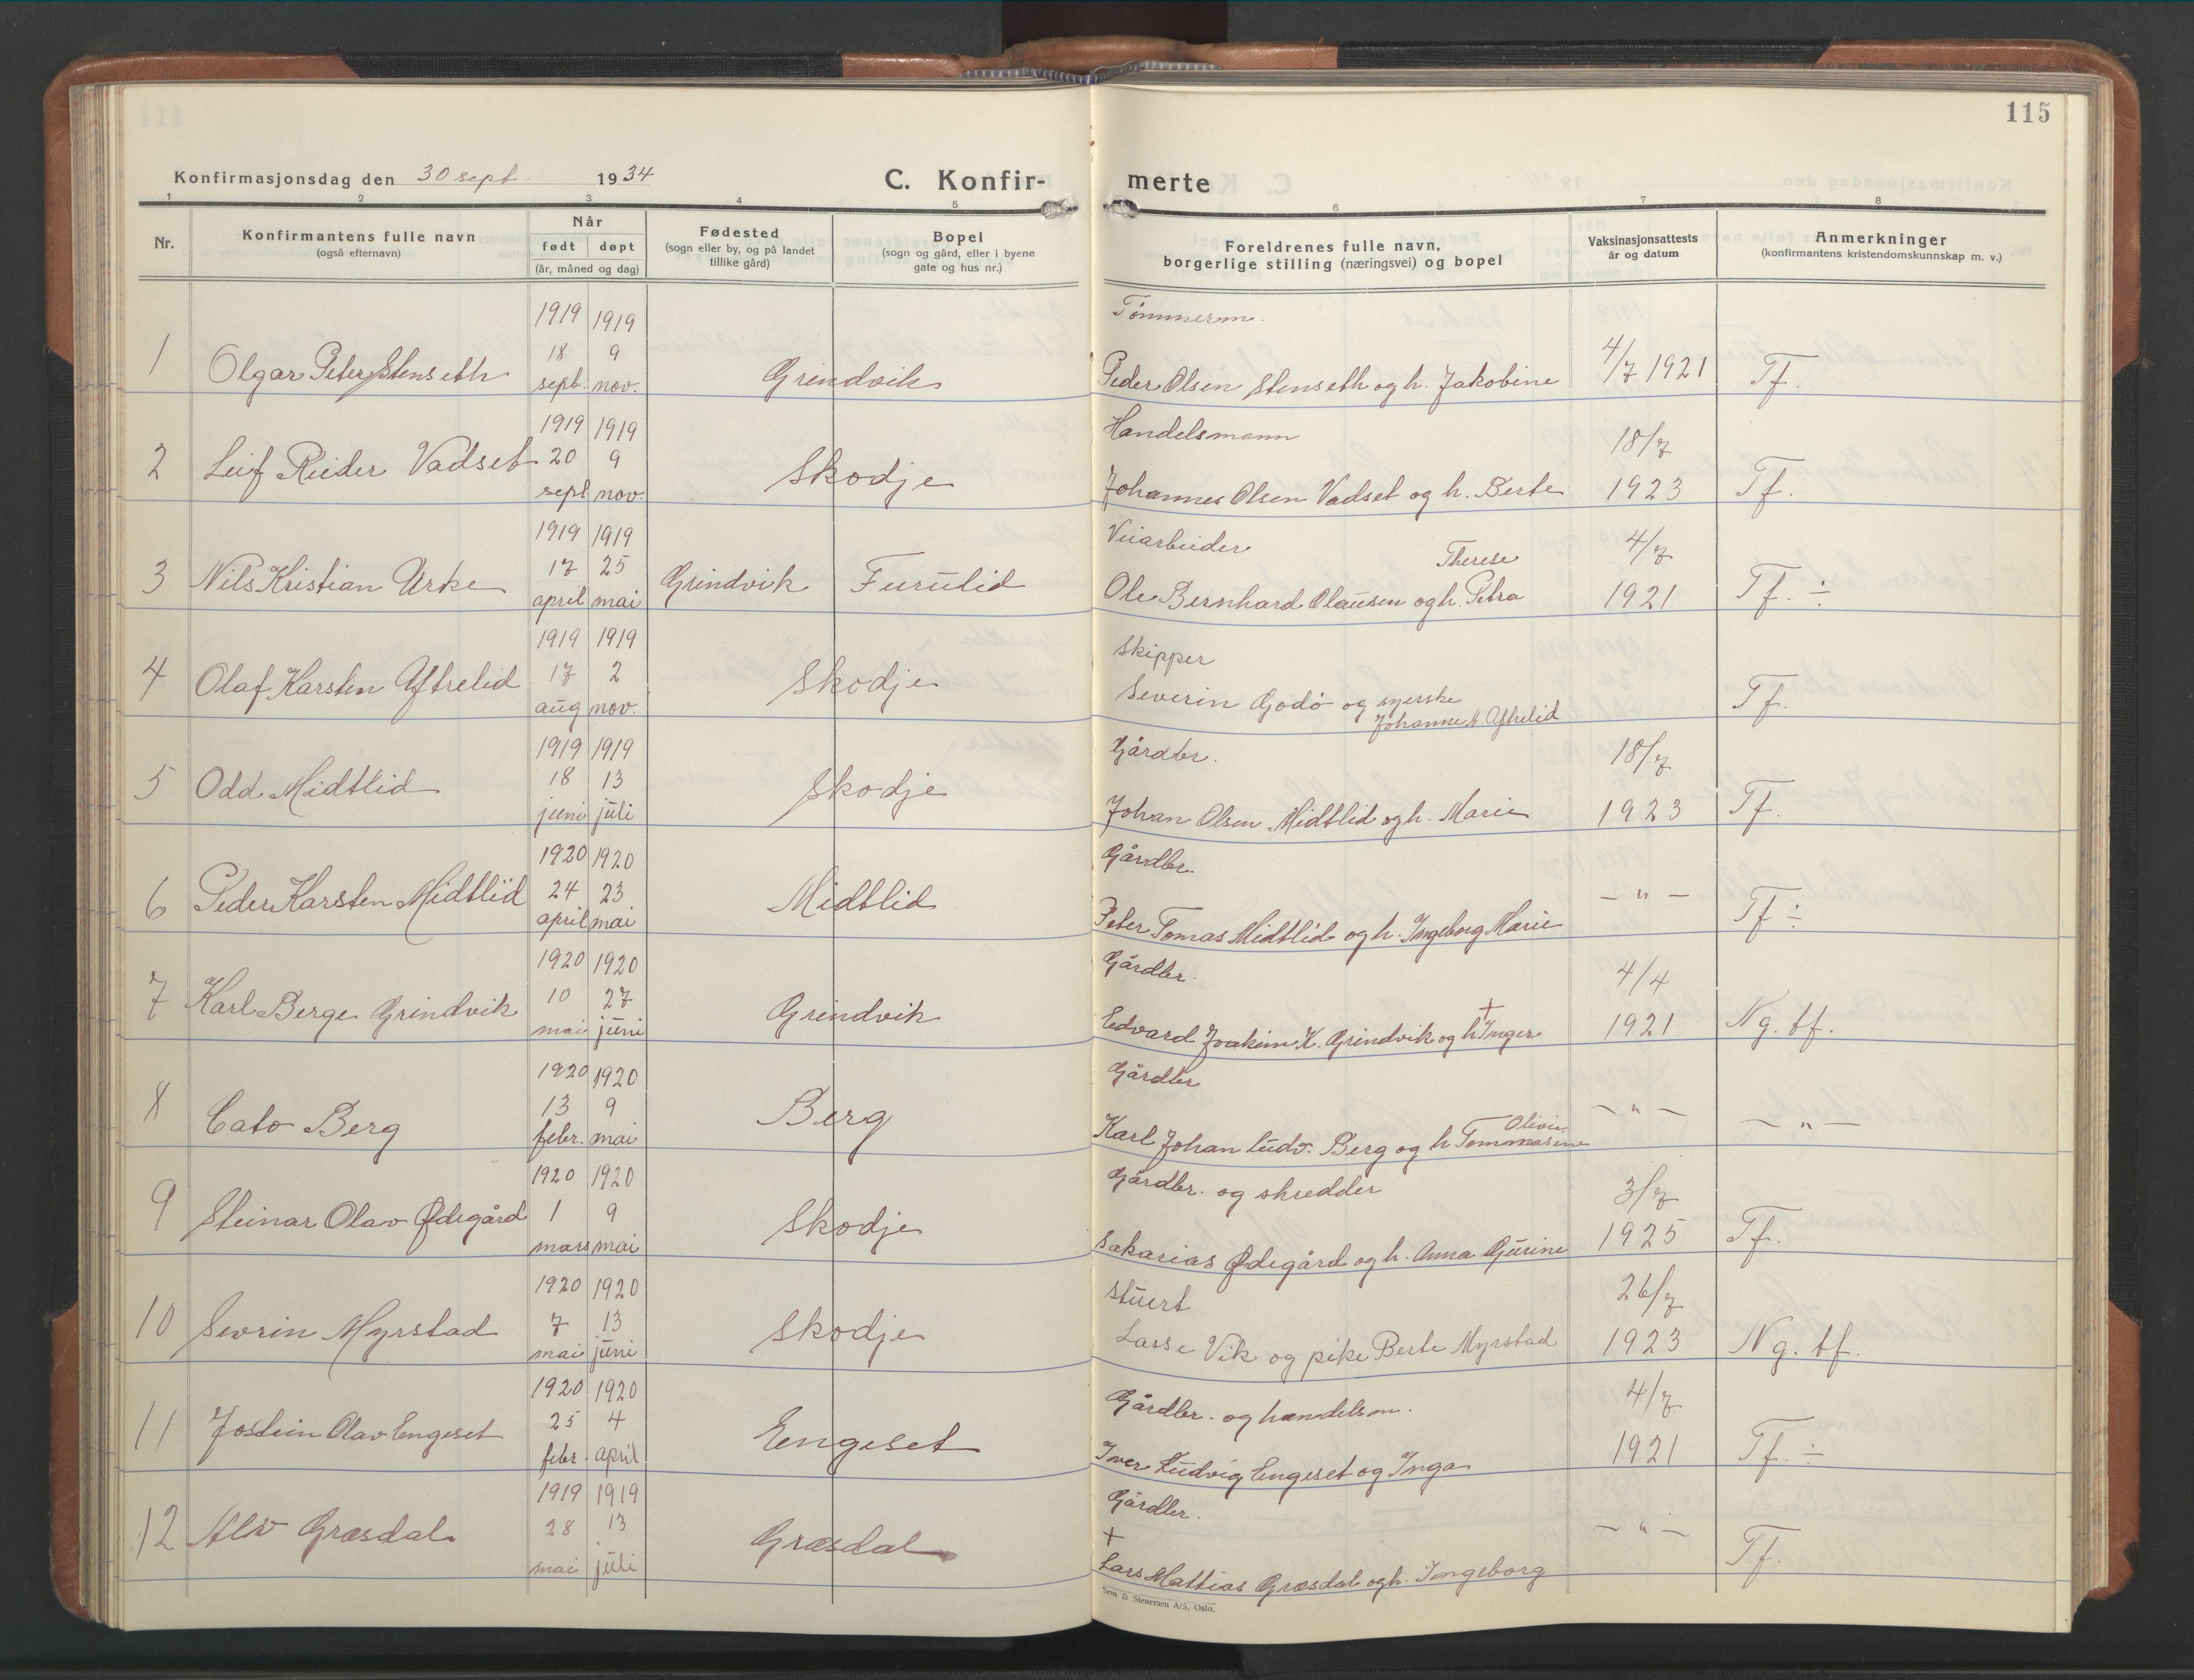 115
Konfirmasjonsdag den 30 sept. 1934
C. Konfir-merte
1 2 3 4 5 6 7 8
Nr.
Konfirmantens fulle navn
(også efternavn)
Når
født døpt
(år, måned og dag)
Fødested
(sogn eller by, og på landet
tillike gård)
Bopel
(sogn og gård, eller i byene
gate og hus nr.)
Foreldrenes fulle navn,
borgerlige stilling (næringsvei) og bopel
Vaksinasjonsattests
år og datum
Anmerkninger
(konfirmantens kristendomskunnskap m. v.)
1919 1919 Tømmerm.
1 Olgar Peter Stenseth 18 9 Grindvik Peder Olsen Stenseth og h. Jakobine 4/7 1921 Tf.
sept. nov.
1919 1919 Handelsmann 18/7
2 Leif Reider Vadset 20 9 Skodje Johannes Olsen Vadset og h. Berte 1923 Tf.
sept nov.
1919 1919 Veiarbeider Therese 4/7
3 Nils Kristian Urke 17 25 Grindvik Furulid Ole Bernhard Olausen og h. Petra 1921 Tf. ÷
april mai
1919 1919 Skipper
4 Olaf Karsten Aftrelid 17 2 Skodje Severin Godø og syerske Tf.
aug nov. Johanne A. Aftrelid
1919 1919 Gårdbr. 18/7
5 Odd Midtlid 18 13 Skodje Johan Olsen Midtlid og h. Marie 1923 Tf.
juni juli
1920 1920 Gårdbr.
6 Peder Karsten Midtlid 24 23 Midtlid Peter Tomas Midtlid og h. Ingeborg Marie — " — Tf ÷
april mai
1920 1920 Gårdbr. 4/4
7 Karl Berge Grindvik 10 27 Grindvik Edvard Joakim K. Grindvik og h. + Inger 1921 Ng. tf.
mai juni
1920 1920 Gårdbr
8 Cato Berg 13 9 Berg Karl Johan Ludv. Berg og h Tommasine Olivie — " — — " —
febr. mai
1920 1920 Gårdbr. og skredder 3/7
9 Steinar Olav Ødegård 1 9 Skodje Sakarias Ødegård og h. Anna Gurine 1925 Tf.
mars mai
1920 1920 Stuert 26/7
10 Sevrin Myrstad 7 13 Skodje Lasse Vik og pike Berte Myrstad 1923 Ng. tf.
mai juni
1920 1920 Gårdbr. og handelsm. 4/7
11 Jostein Olav Engeset 25 4 Engeset Iver Ludvig Engeset og Inga 1921 Tf. ÷
febr. april
1919 1919 Gårdbr.
12 Alv Græsdal 28 13 Græsdal + Lars Mattias Græsdal og h. Ingeborg — " — Tf.
mai juli
Sem & Stenersen A/S, Oslo.